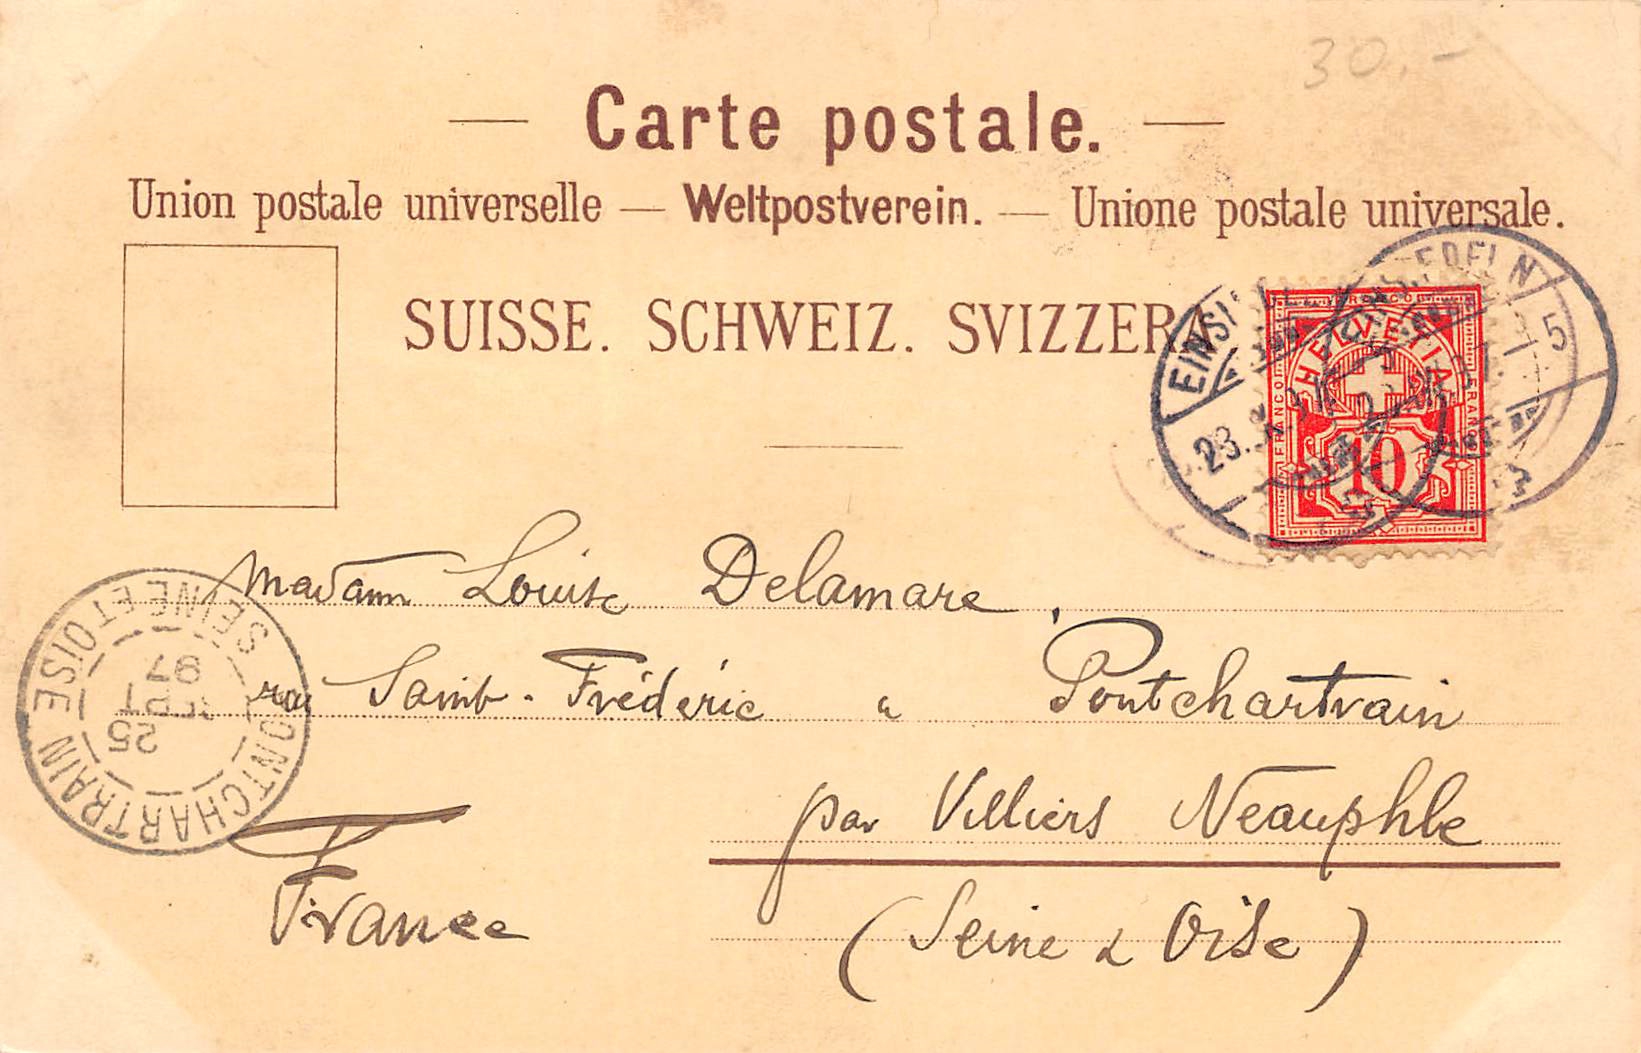 30.-
Carte postale.
Union postale universelle — Weltpostverein. — Unione postale universale.
SUISSE. SCHWEIZ. SVIZZERA
EINSIEDELN
23.
5
FRANCO
HELVETIA
FRANCO
FRANCO
10
Madame Louise Delamare,
rue Saint-Frédéric à Pontchartrain
par Villiers Neauphle
(Seine & Oise)
France
PONTCHARTRAIN
SEINE ET OISE
25
SEPT
97